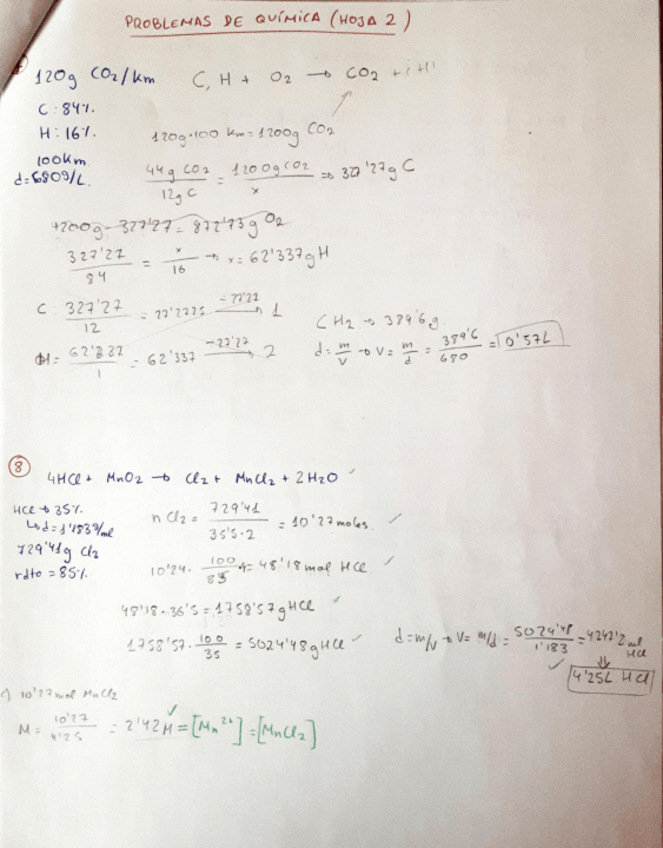 PROBLEMAS DE QUÍMICA (HOJA 2)
120g CO2/km C, H + O2 → CO2 +
C: 84%
H: 16% 120g·100 km = 1200g CO2
100km
d=680g/L 44g CO2 / 12g C = 1200g CO2 / x ⇒ 327'27g C
1200g - 327'27 = 872'73 g O2
327'27 / 84 = x / 16 → x = 62'337g H
C: 327'27 / 12 = 27'2725 →(÷27'27) 1
H = 62'337 / 1 = 62'337 →(÷27'27) 2
CH2 → 389'6g
d = m/V → V = m/d = 389'6 / 680 = 0'57L
8
4HCl + MnO2 → Cl2 + MnCl2 + 2H2O ✓
HCl → 35%
↳ d = 1'183g/ml
729'41g Cl2
rdto = 85%
n Cl2 = 729'41 / 35'5·2 = 10'27 moles ✓
10'24 · 100/85 · 4 = 48'18 mol HCl ✓
48'18 · 36'5 = 1758'57g HCl ✓
1758'57 · 100/35 = 5024'48g HCl ✓ d = m/V → V = m/d = 5024'48 / 1'183 = 4247'2 ml HCl
✓ ⇓
4'25L HCl
c) 10'27 mol MnCl2
M = 10'27 / 4'25 = 2'42M = [Mn2+] = [MnCl2] ✓